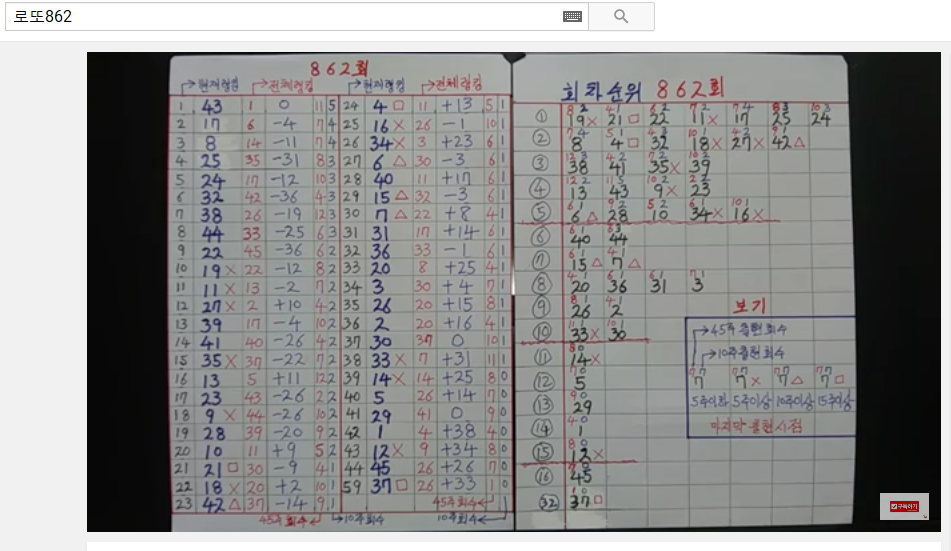 로또862
862회
현재랭킹 전체랭킹 현재랭킹 전체랭킹
1 43 1 0 11 5 24 4 □ 11 +13 5 1
2 17 6 -4 7 4 25 16 × 26 -1 10 1
3 8 14 -11 7 4 26 34 × 3 +23 6 1
4 25 35 -31 8 3 27 6 △ 30 -3 6 1
5 24 17 -12 10 3 28 40 11 +17 6 1
6 32 42 -36 4 3 29 15 △ 32 -3 6 1
7 38 26 -19 12 3 30 7 △ 22 +8 4 1
8 44 33 -25 6 3 31 31 17 +14 6 1
9 22 45 -36 6 2 32 36 33 -1 6 1
10 19 × 22 -12 8 2 33 20 8 +25 4 1
11 11 × 13 -2 7 2 34 3 30 +4 7 1
12 27 × 2 +10 4 2 35 26 20 +15 8 1
13 39 17 -4 10 2 36 2 20 +16 4 1
14 41 40 -26 4 2 37 30 37 0 10 1
15 35 × 37 -22 7 2 38 33 × 7 +31 11 1
16 13 5 +11 12 2 39 14 × 14 +25 8 0
17 23 43 -26 2 2 40 5 26 +14 7 0
18 9 × 44 -26 10 2 41 29 41 0 9 0
19 28 39 -20 9 2 42 1 4 +38 4 0
20 10 11 +9 5 2 43 12 × 9 +34 8 0
21 21 □ 30 -9 4 1 44 45 26 +26 7 0
22 18 × 20 +2 10 1 59 37 □ 26 +33 1 0
23 42 △ 37 -14 9 1 45주회수
45주회수 10주회수 10주회수
회차순위 862회
① 19 × 21 □ 22 11 × 17 25 24
② 8 4 □ 32 18 × 27 × 42 △
③ 38 41 35 × 39
④ 13 43 9 × 23
⑤ 6 △ 28 10 34 × 16 ×
⑥ 40 44
⑦ 15 △ 7 △
⑧ 20 36 31 3
⑨ 26 2
⑩ 33 × 30
⑪ 14 ×
⑫ 5
⑬ 29
⑭ 1
⑮ 12 ×
⑯ 45
㉜ 37 □
보기
45주출현회수
10주출현회수
7 7 × 7 △ 7 □
5주이하 5주이상 10주이상 15주이상
마지막 출현시점
구독하기